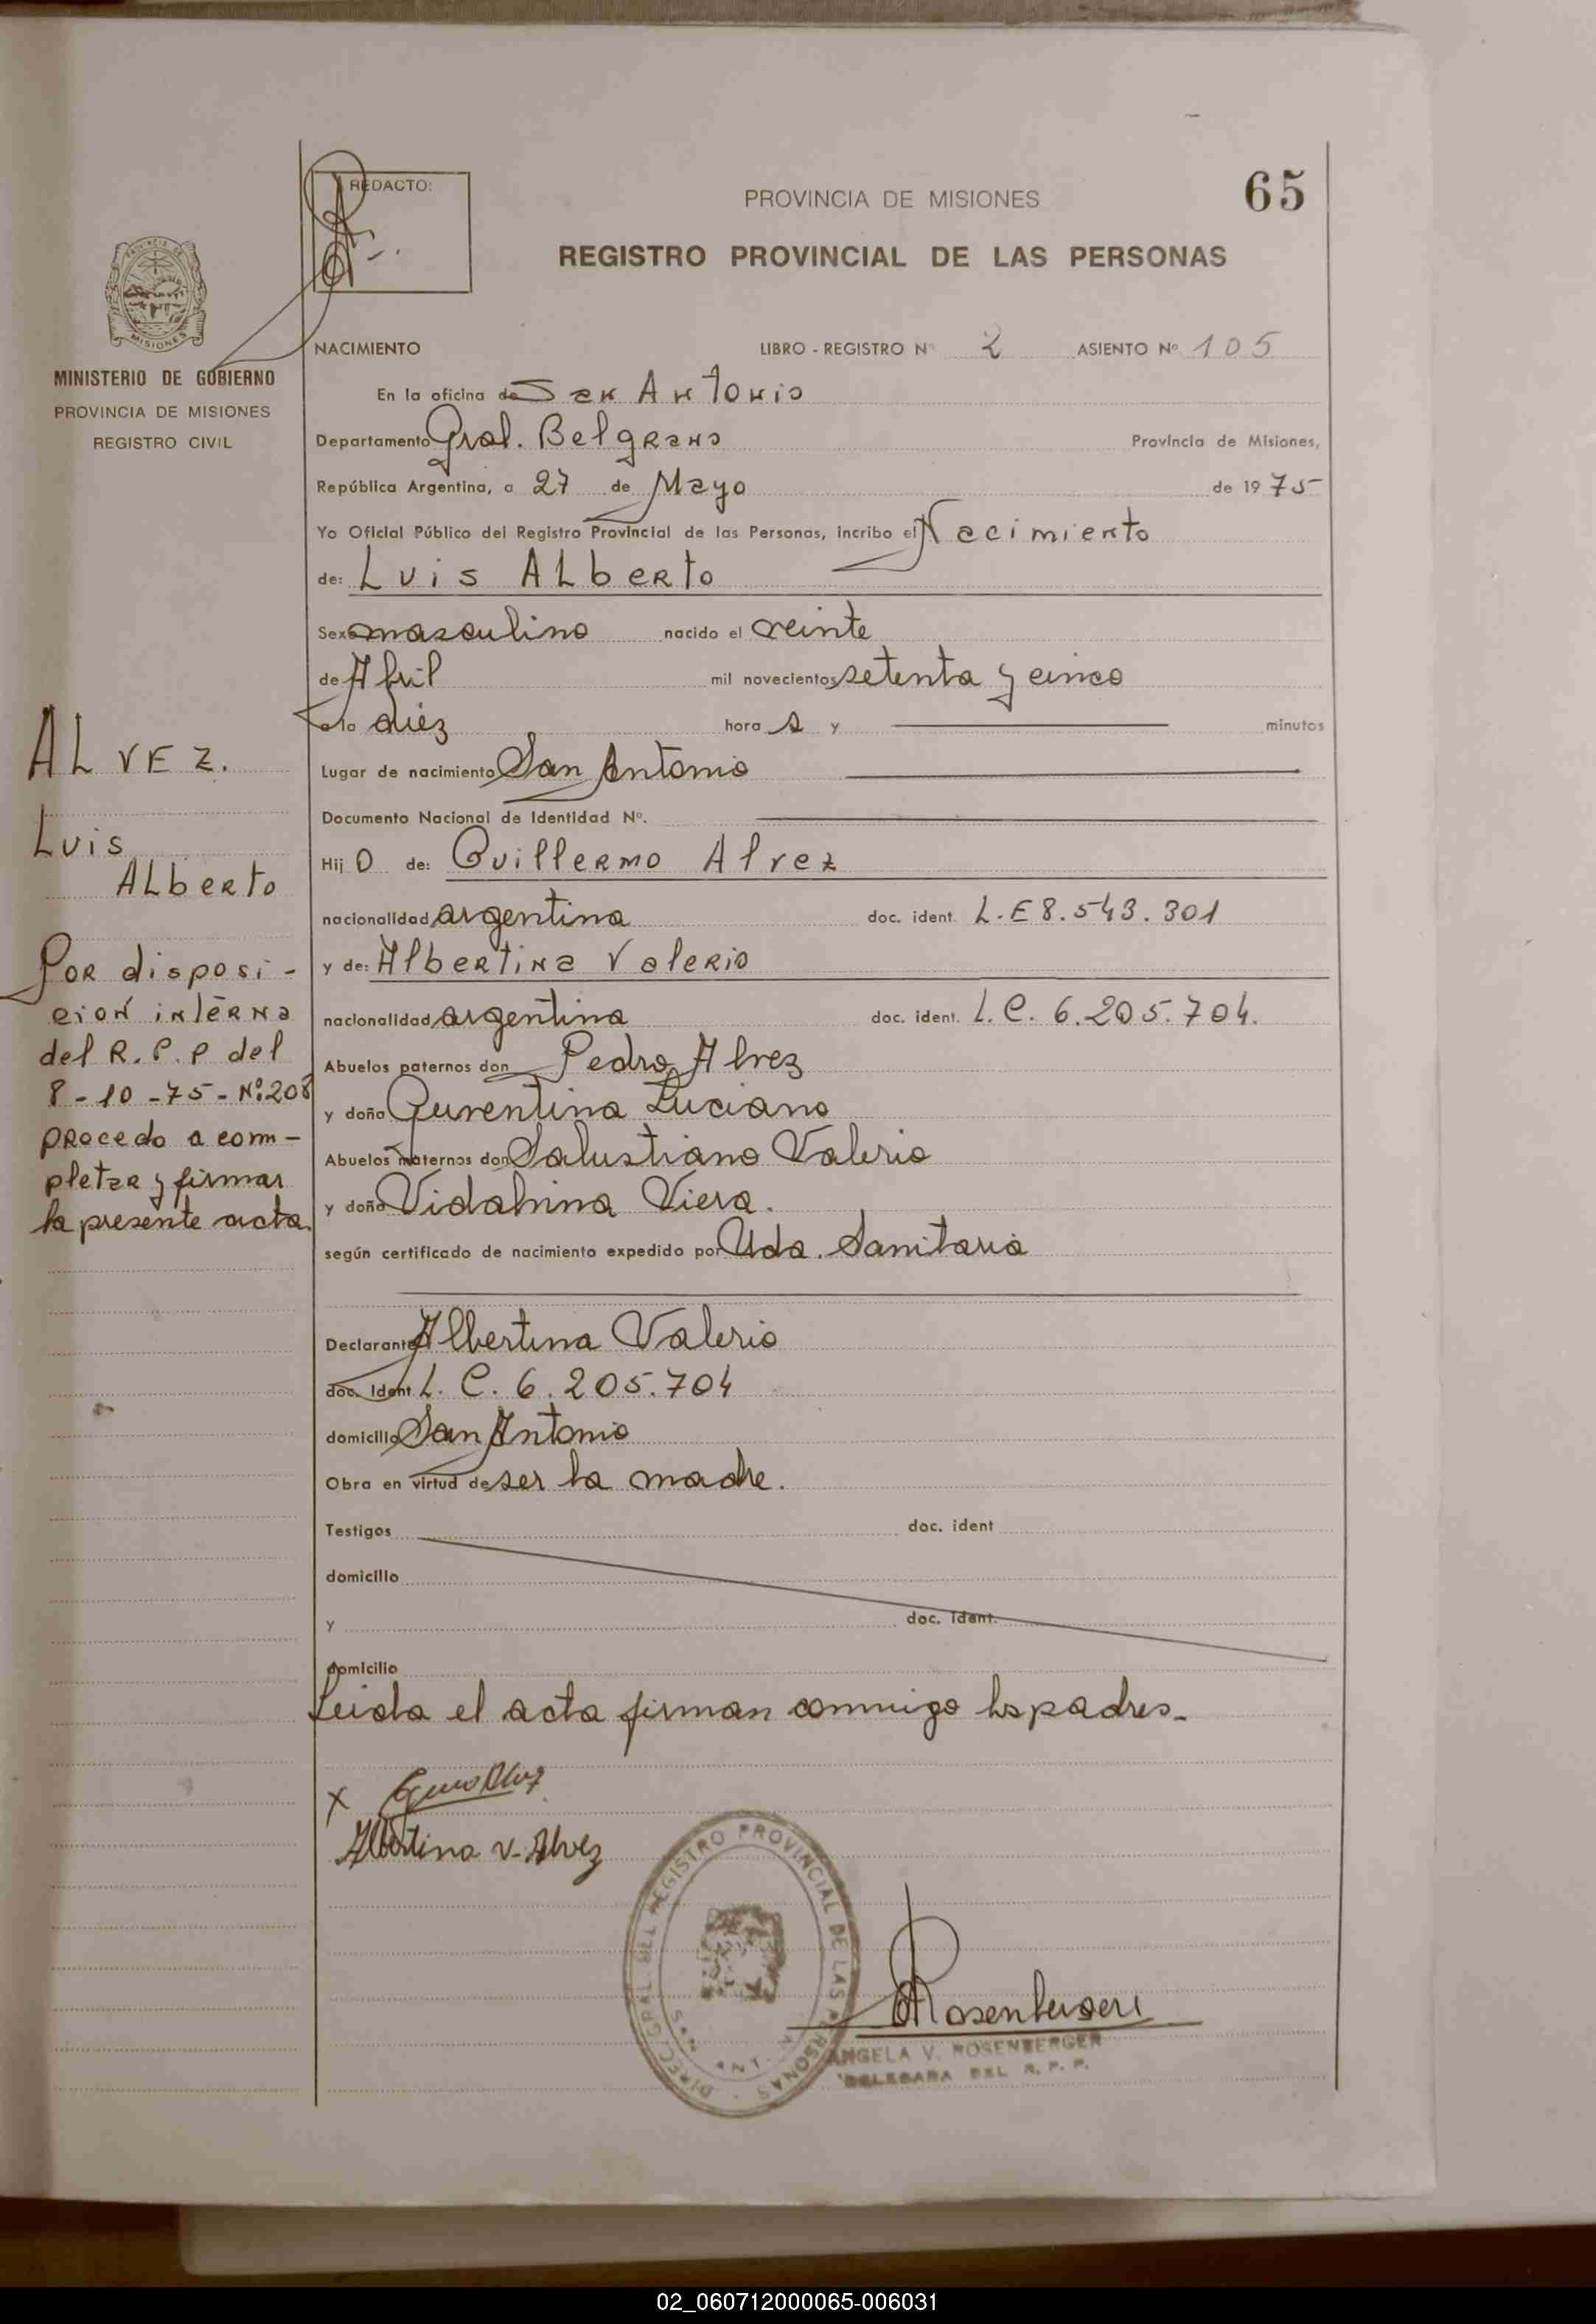 REDACTO:
PROVINCIA DE MISIONES
65
REGISTRO PROVINCIAL DE LAS PERSONAS
MINISTERIO DE GOBIERNO
PROVINCIA DE MISIONES
REGISTRO CIVIL
NACIMIENTO LIBRO - REGISTRO Nº 2 ASIENTO Nº 105
En la oficina de San Antonio
Departamento Gral. Belgrano Provincia de Misiones,
República Argentina, a 27 de Mayo de 1975
Yo Oficial Público del Registro Provincial de las Personas, incribo el Nacimiento
de: Luis Alberto
Sexo masculino nacido el veinte
de Abril mil novecientos setenta y cinco
a la diez hora s y minutos
Lugar de nacimiento San Antonio
Documento Nacional de Identidad Nº.
Hij o de: Guillermo Alvez
nacionalidad argentina doc. ident. L.E 8.543.301
y de: Albertina Valerio
nacionalidad argentina doc. ident. L.C. 6.205.704.
Abuelos paternos don Pedro Alvez
y doña Luciano
Abuelos maternos don Salustiano Valerio
y doña Viera.
según certificado de nacimiento expedido por Uda. Sanitaria
Declarante Albertina Valerio
doc. Ident. L. C. 6.205.704
domicilio San Antonio
Obra en virtud de ser la madre.
Testigos doc. ident
domicilio
y doc. ident.
domicilio
Leida el acta firman conmigo los padres.
ALVEZ.
Luis
Alberto
Por disposi-
cion interna
del R.P.P del
8-10-75-Nº:208
procedo a com-
pletar y firmar
la presente acta.
X
Albertina V. Alvez
DIREC. GRAL. DEL REGISTRO PROVINCIAL DE LAS PERSONAS
SAN ANT.
Rosenberger
ANGELA V. ROSENBERGER
DELEGADA DEL R. P. P.
02_060712000065-006031